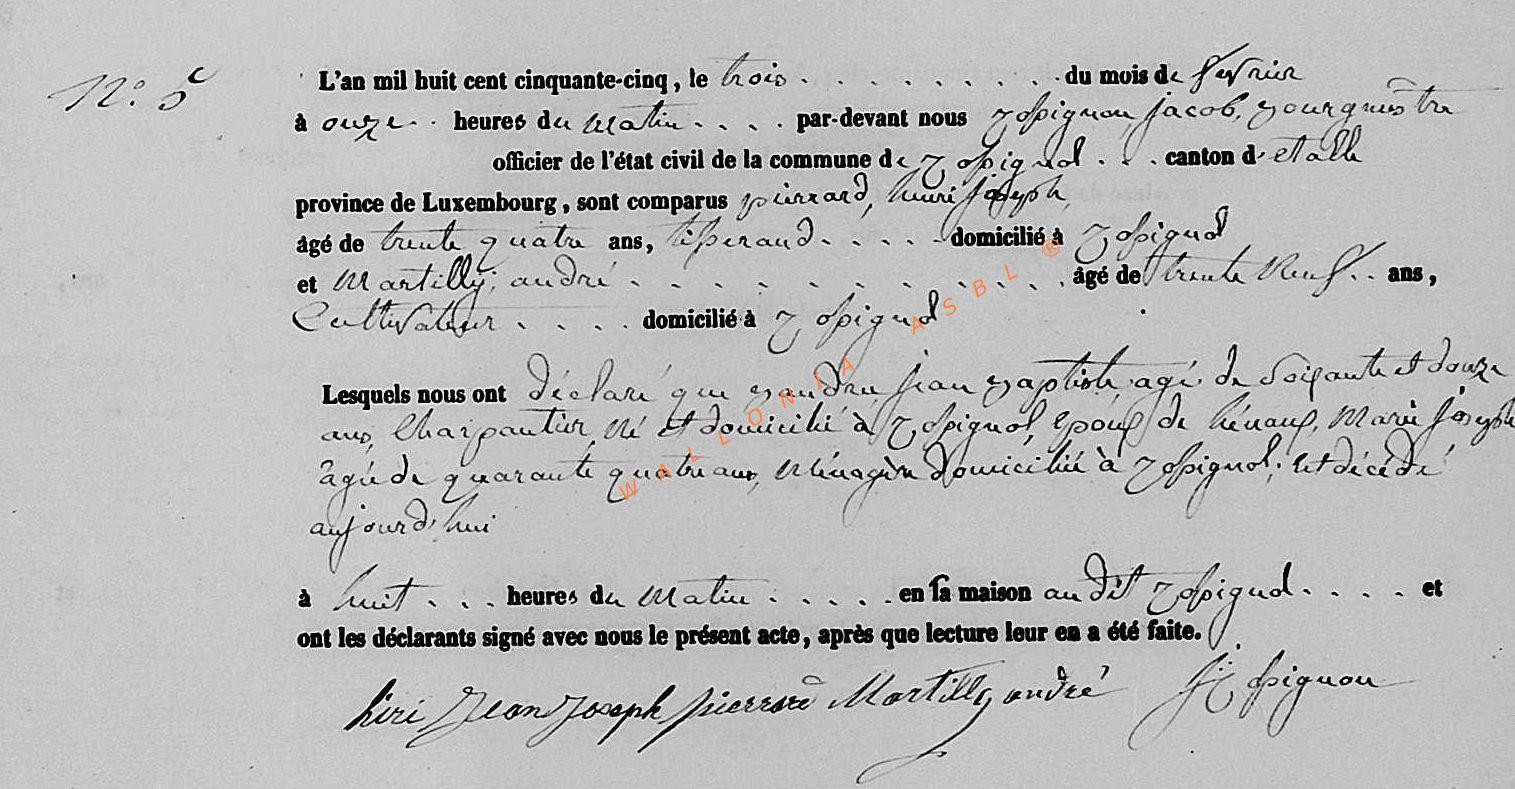 N° 5
L'an mil huit cent cinquante-cinq, le trois . . . . . . . . . du mois de fevrier
à onze . . heures du matin . . . . par-devant nous Rossignon, jacob, Bourgmestre
officier de l'état civil de la commune de Rossignol . . . canton d'etalle
province de Luxembourg, sont comparus pierrard, henri joseph,
âgé de trente quatre ans, tisserand . . . . . domicilié à Rossignol
et Martilly, andré . . . . . . . . . . . . âgé de trente neuf . . ans,
Cultivateur . . . . domicilié à Rossignol
Lesquels nous ont déclaré que jean Baptiste agé de soixante et douze
ans, Charpentier, né et domicilié à Rossignol, époux de Marie joseph
âgée de quarante quatre ans, Ménagère domiciliée à Rossignol, est décédé
aujourd'hui
à huit . . . heures du matin . . . . . en sa maison audit Rossignol . . . . et
ont les déclarants signé avec nous le présent acte, après que lecture leur en a été faite.
hiri Jean Joseph pierrard Martilly andré J Rossignon
WALLONIA ASBL ®